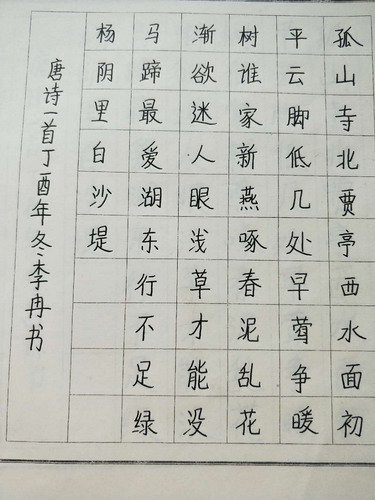 孤山寺北贾亭西水面初
平云脚低几处早莺争暖
树谁家新燕啄春泥乱花
渐欲迷人眼浅草才能没
马蹄最爱湖东行不足绿
杨阴里白沙堤
唐诗一首丁酉年冬李冉书